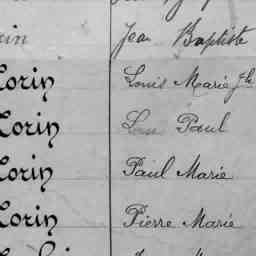 Jean Baptiste
Lorin Louis Marie
Lorin Paul
Lorin Paul Marie
Lorin Pierre Marie